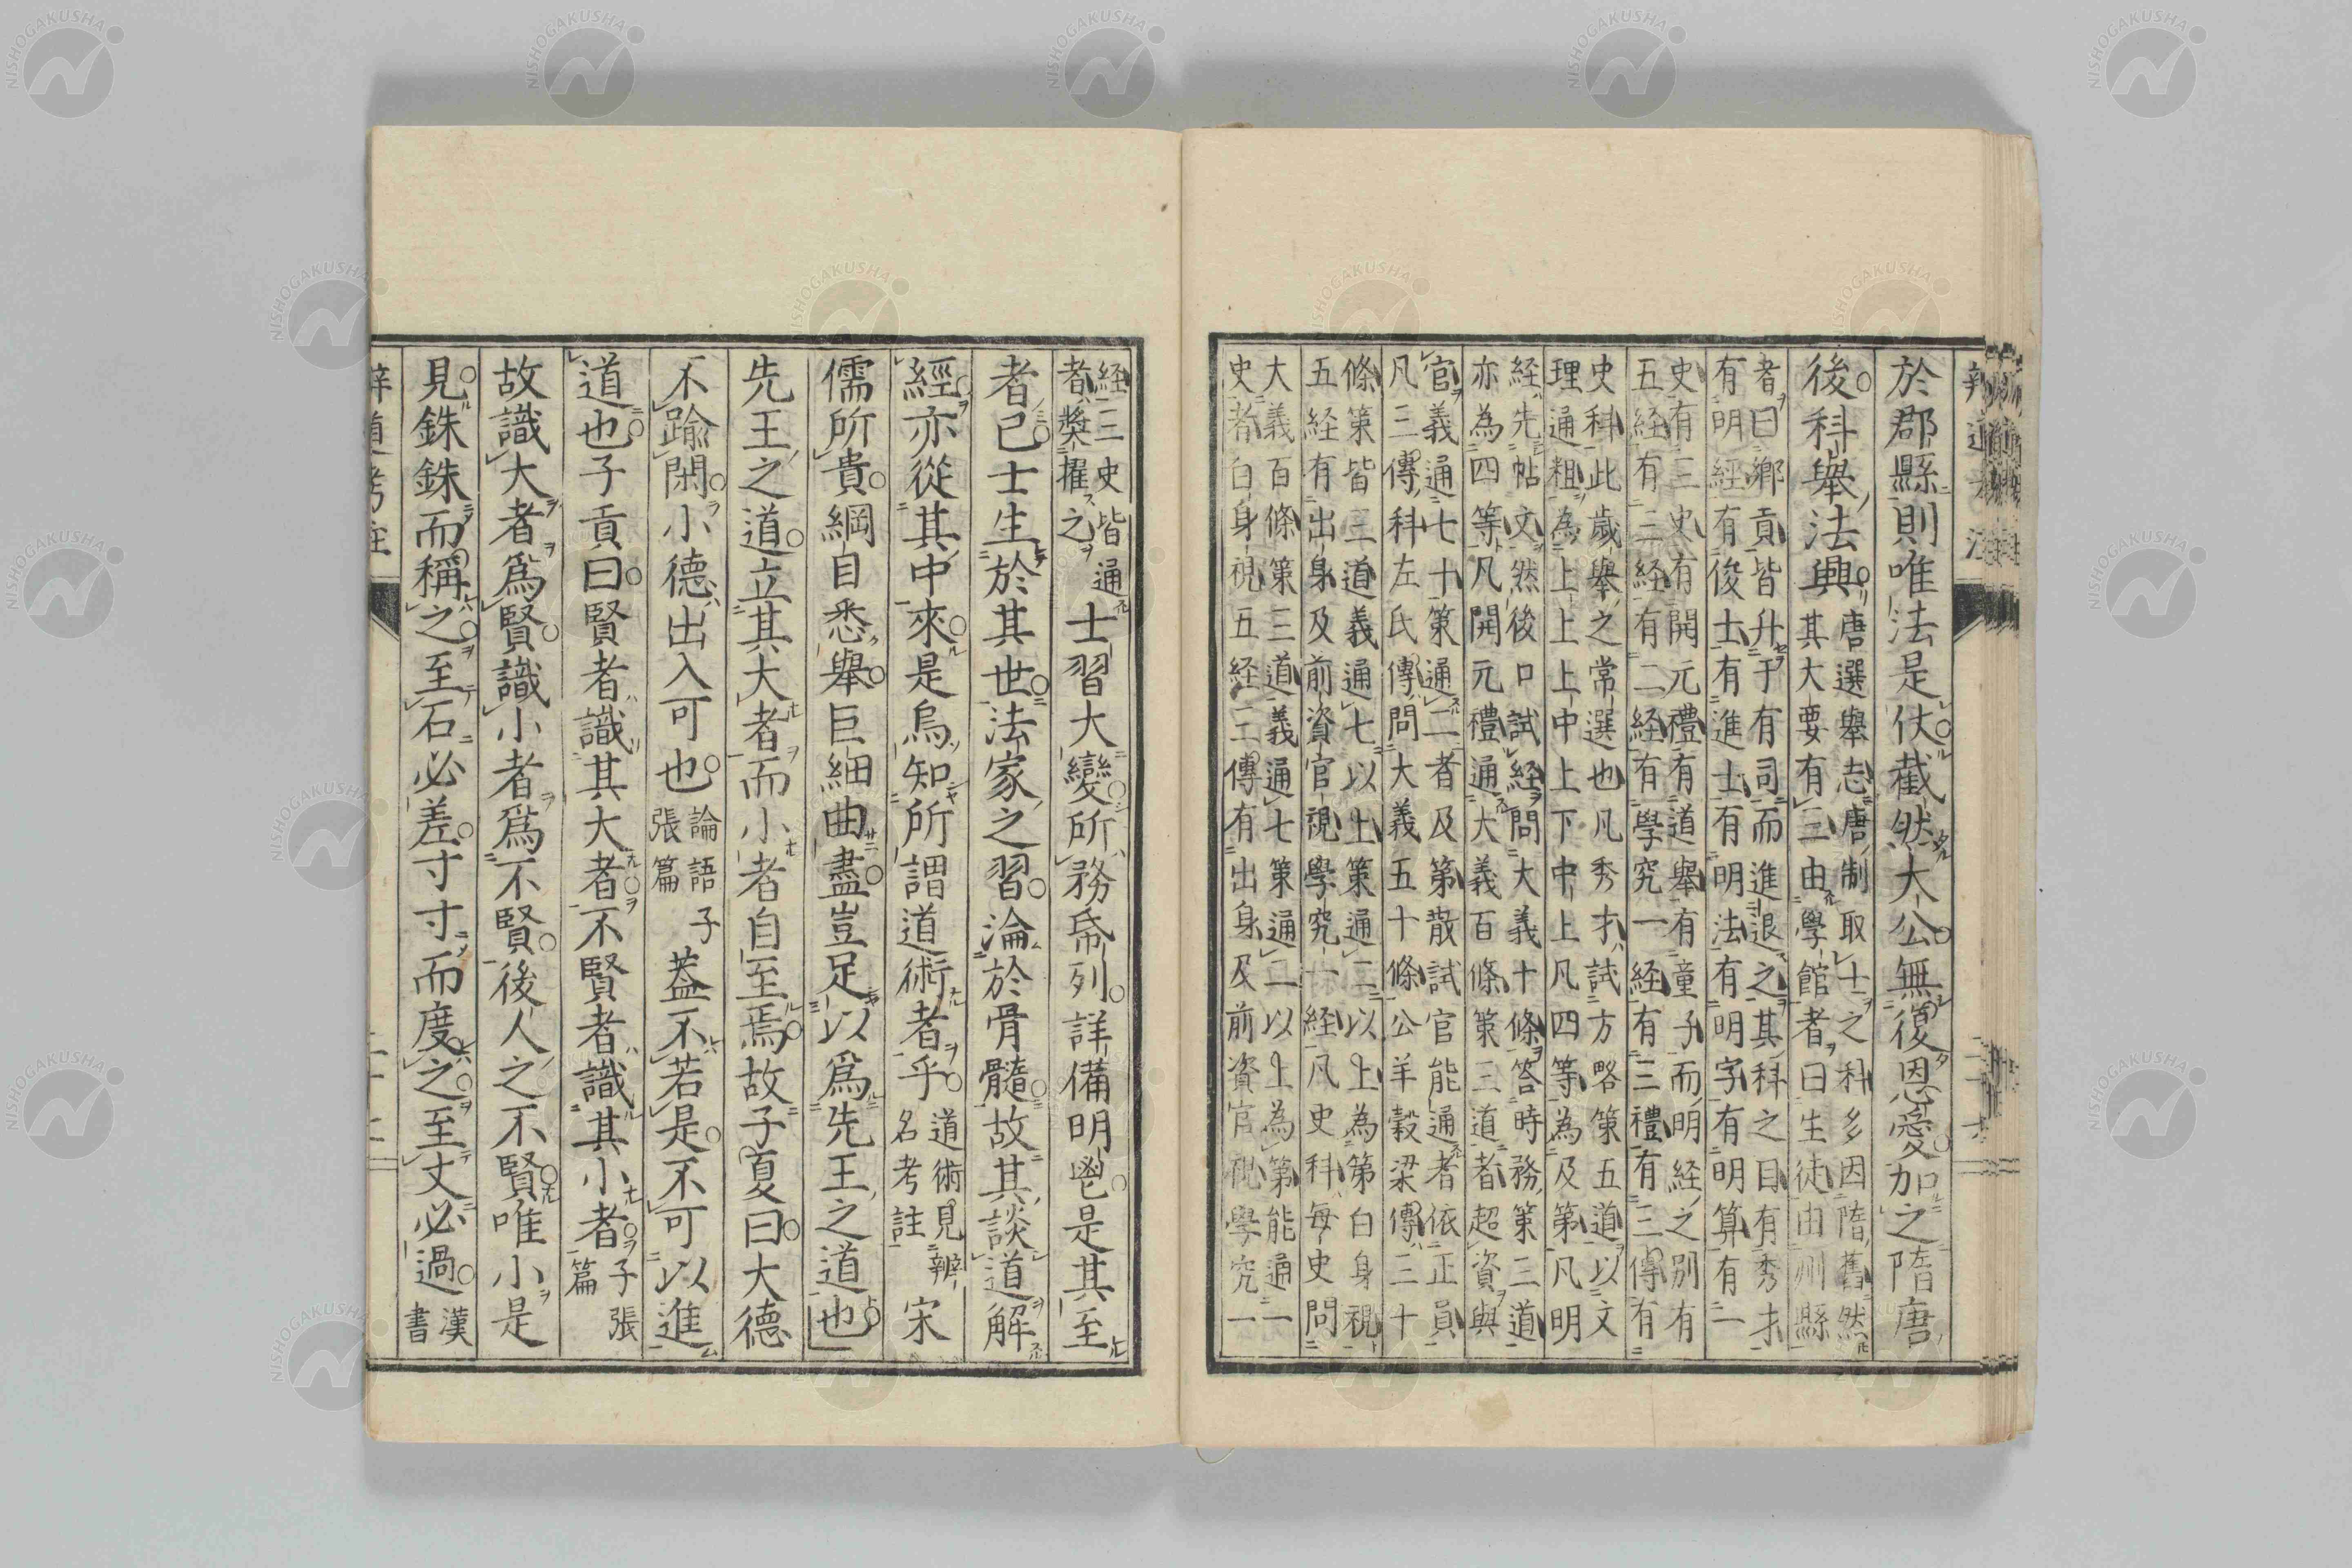 於郡縣則唯法是仗截然大公無復恩愛加之隋唐
後科舉法興
唐選舉志唐制取士之科多因隋舊然
其大要有三由學館者曰生徒由州縣
者曰鄉貢皆升于有司而進退之其科之目有秀才
有明經有俊士有進士有明法有明字有明算有一
史有三史有開元禮有道舉有童子而明経之別有
五経有三経有二経有學究一経有三禮有三傳有
史科此歲舉之常選也凡秀才試方略策五道以文
理通粗為上上上中上下中上凡四等為及第凡明
経先帖文然後口試経問大義十條答時務策三道
亦為四等凡開元禮通大義百條策三道者超資與
官義通七十策通二者及第散試官能通者依正員
凡三傳科左氏傳問大義五十條公羊穀梁傳三十
條策皆三道義通七以上策通二以上為第白身視
五経有出身及前資官視學究一経凡史科每史問
大義百條策三道義通七策通二以上為第能通一
史者白身視五経三傳有出身及前資官視學究一
経三史皆通
者奬擢之
士習大變所務希列詳備明鬯是其至
者已士生於其世法家之習淪於骨髓故其談道解
經亦從其中來是烏知所謂道術者乎
道術見辨
名考註
宋
儒所貴綱自悉舉巨細曲盡豈足以爲先王之道也
先王之道立其大者而小者自至焉故子夏曰大德
不踰閑小德出入可也
論語子
張篇
蓋不若是不可以進
道也子貢曰賢者識其大者不賢者識其小者
子張
篇
故識大者爲賢識小者爲不賢後人之不賢唯小是
見銖銖而稱之至石必差寸寸而度之至丈必過
漢
書
NISHOGAKUSHA